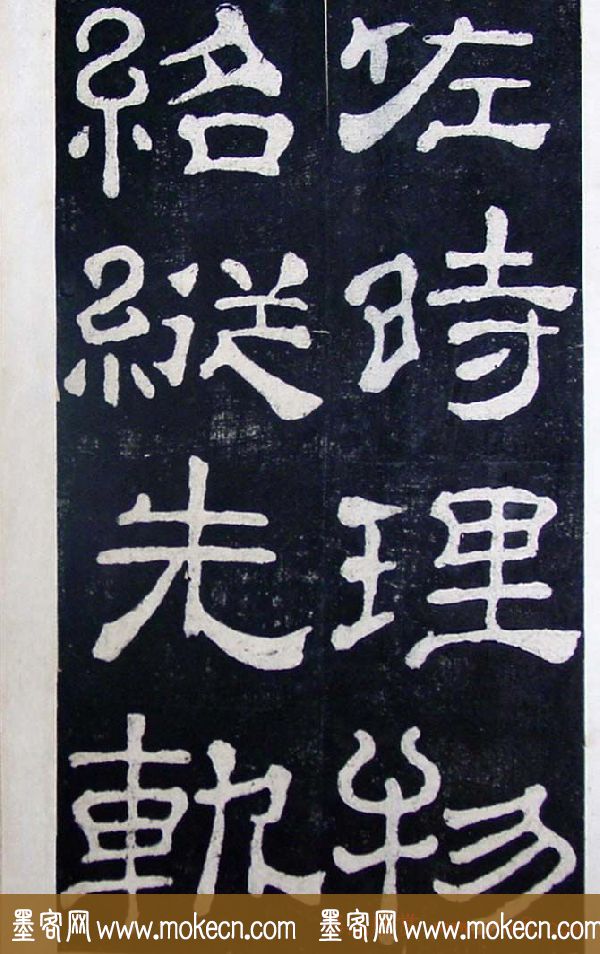 佐時理物
紹縱先軌
墨客网 www.mokecn.com 墨客网 www.mokecn.com